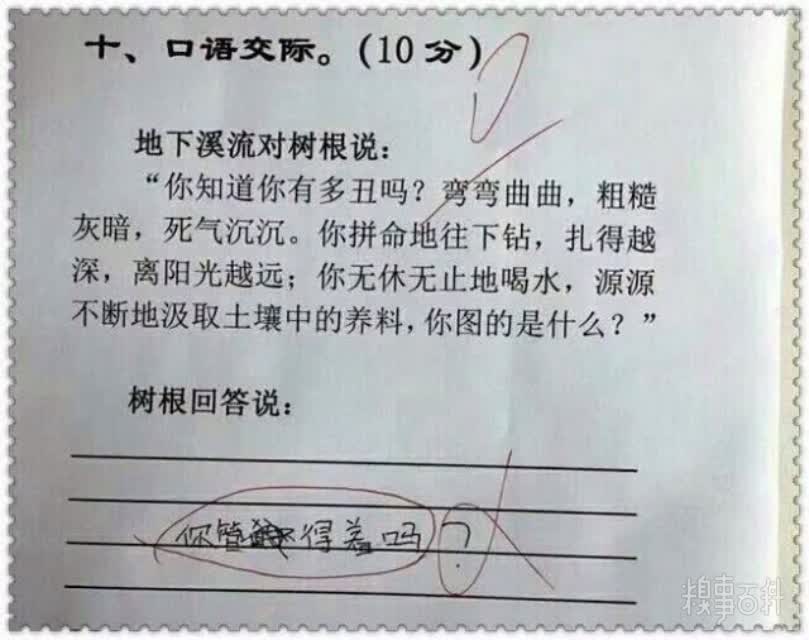 十、口语交际。(10分)
0
地下溪流对树根说：
“你知道你有多丑吗？弯弯曲曲，粗糙
灰暗，死气沉沉。你拼命地往下钻，扎得越
深，离阳光越远；你无休无止地喝水，源源
不断地汲取土壤中的养料，你图的是什么？”
树根回答说：
你管得着吗？
糗事百科